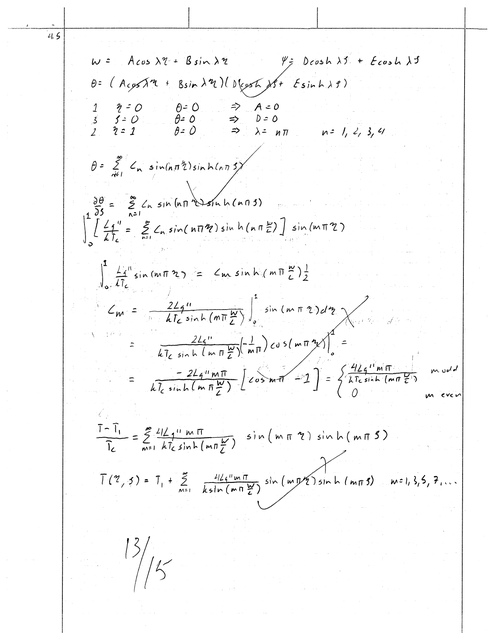 4.5
W = Acos λη + Bsin λη   ψ = Dcosh λζ + Ecosh λζ
θ = (Acos λη + Bsin λη)(Dcosh λζ + Esinh λζ)
1   η=0   θ=0   ⇒ A=0
3   ζ=0   θ=0   ⇒ D=0
2   η=1   θ=0   ⇒ λ=nπ   n=1, 2, 3, 4
θ = ∑_{n=1}^∞ C_n sin(nπη) sinh(nπζ)
∂θ/∂ζ = ∑_{n=1}^∞ C_n sin(nπη) sinh(nπζ)
∫_0^1 [Lq''/kT_c = ∑_{n=1}^∞ C_n sin(nπη) sinh(nπ W/L)] sin(mπη)
∫_0^1 Lq''/kT_c sin(mπη) = C_m sinh(mπ W/L) 1/2
C_m = 2Lq''/(kT_c sinh(mπ W/L)) ∫_0^1 sin(mπη)dη
= 2Lq''/(kT_c sinh(mπ W/L)) (-1/mπ) cos(mπη)|_0^1 =
= -2Lq''mπ/(kT_c sinh(mπ W/L)) [cos mπ - 1] = { 4Lq''mπ/(kT_c sinh(mπ W/L))   m odd
0   m even
(T-T_1)/T_c = ∑_{m=1}^∞ 4Lq''mπ/(kT_c sinh(mπ W/L)) sin(mπη) sinh(mπζ)
T(η, ζ) = T_1 + ∑_{m=1}^∞ 4Lq''mπ/(k sin(mπ W/L)) sin(mπη) sinh(mπζ)   m=1,3,5,7,...
13/15